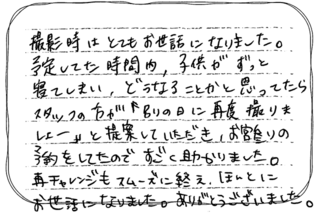 撮影時はとてもお世話になりました。
予定してた時間内、子供がずっと
寝てしまい、どうなることかと思ってたら
スタッフの方が『別の日に再度撮りま
しょー』と提案していただき、お宮参りの
予約をしてたのですごく助かりました。
再チャレンジもスムーズに終え、ほんとに
お世話になりました。ありがとうございました。